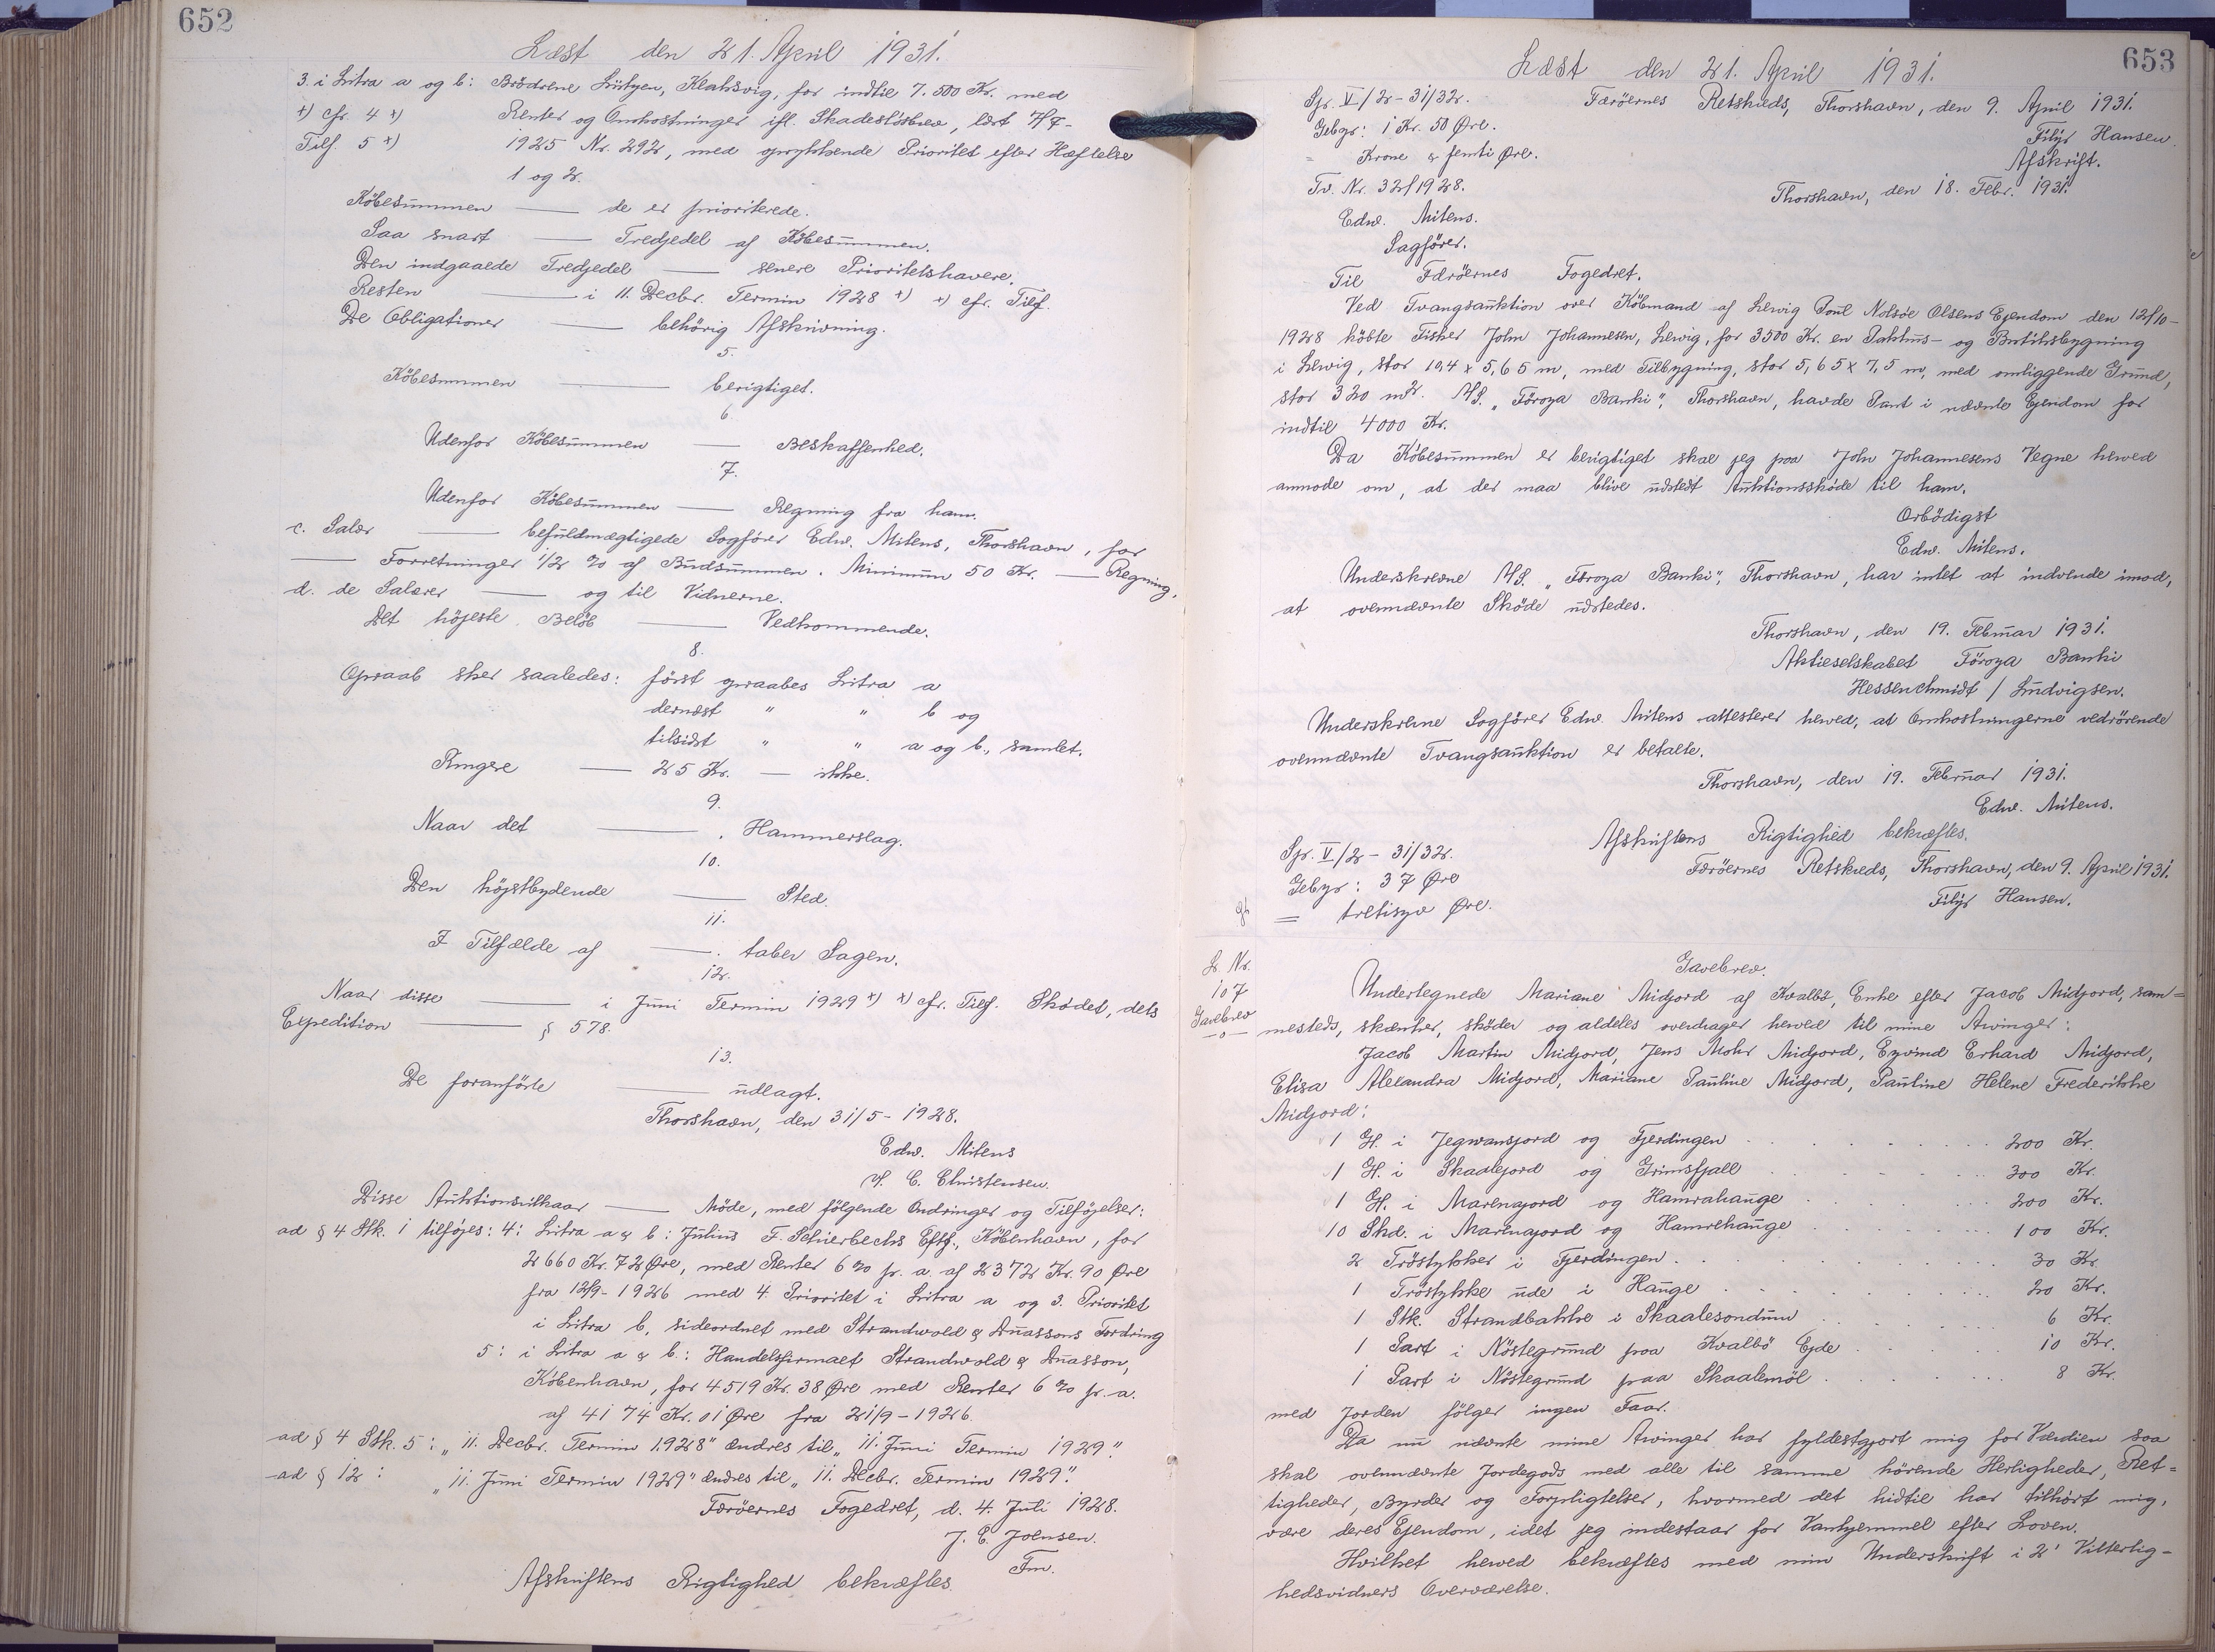 652
Læst den 21. April 1931.
3. i Litra a og b: Brödrene Lützen, Klaksvig, for indtil 7.500 Kr. med
x) cfr. 4 x) Renter og Omkostninger ifl. Skadeslösbrev, læst 7/7-
Tilf. 5 x) 1925 Nr. 292, med oprykkende Prioritet efter Hæftelse
1 og 2.
Köbesummen — de er prioriterede.
Saa snart — Tredjedel af Köbesummen.
Den indgaaede Tredjedel — senere Prioritetshavere.
Resten — i 11. Decbr. Termin 1928 x) x) cfr. Tilf.
De Obligationer — behörig Afskrivning.
5.
Köbesummen — berigtiget.
6
Udenfor Köbesummen — Beskaffenhed.
7.
Udenfor Köbesummen — Regning fra ham.
c. Salær — befuldmægtigede Sagförer Edw. Mitens, Thorshavn, for
— Forretninger 1/2 % af Budsummen. Minimum 50 Kr. — Regning.
d. de Salærer — og til Vidnerne.
Det höjeste Belöb — Vedkommende.
8.
Opraab sker saaledes: först opraabes Litra a
dernæst " " b og
tilsidst " " a og b., samlet.
Ringere — 25 Kr. — ikke.
9.
Naar det — . Hammerslag.
10.
Den höjstbydende — Sted.
11.
I Tilfælde af — . taber Sagen.
12.
Naar disse — i Juni Termin 1929 x) x) cfr. Tilf. Sködet, dets
Expedition — § 578.
13.
De foranförte — udlagt.
Thorshavn, den 31/5 - 1928.
Edw. Mitens
C. Christensen.
Disse Auktionsvilkaar — Möde, med fölgende Ændringer og Tilföjelser:
ad § 4 Stk. 1 tilföjes: 4: Litra a & b: Julius F. Schierbecks Eftf., Köbenhavn, for
2660 Kr. 72 Øre, med Renter 6 % p. a. af 2372 Kr. 90 Øre
fra 12/9 - 1926 med 4. Prioritet i Litra a og 3. Prioritet
i Litra b, sideordnet med Strandvold & Duassons Fordring
5: i Litra a & b.: Handelsfirmaet Strandvold & Duasson,
Köbenhavn, for 4519 Kr. 38 Øre med Renter 6 % p. a.
af 4174 Kr. 01 Øre fra 21/9 - 1926.
ad § 4 Stk. 5: „11. Decbr. Termin 1928" ændres til „11. Juni Termin 1929".
ad § 12: „11. Juni Termin 1929" ændres til „11. Decbr. Termin 1929".
Færöernes Fogedret, d. 4. Juli 1928.
J. E. Joensen.
Fm.
Afskriftens Rigtighed bekræftes.
653
Læst den 21. April 1931.
Spr. V/2 - 31/32. Færöernes Retskreds, Thorshavn, den 9. April 1931.
Gebyr: 1 Kr. 50 Øre. Filip Hansen.
= Krone & femti Øre. Afskrift.
Tv. Nr. 32/1928. Thorshavn, den 18. Febr. 1931.
Edw. Mitens.
Sagförer.
Til Færöernes Fogedret.
Ved Tvangsauktion over Köbmand af Lervig Poul Nolsøe Olsens Ejendom den 12/10-
1928 köbte Fisker John Johannesen, Lervig, for 3500 Kr. en Pakhus- og Butiksbygning
i Lervig, stor 10,4 x 5,65 m, med Tilbygning, stor 5,65 x 7,5 m, med omliggende Grund,
stor 320 m2. A/S. „Föroya Banki", Thorshavn, havde Pant i nævnte Ejendom for
indtil 4000 Kr.
Da Köbesummen er berigtiget skal jeg paa John Johannesens Vegne herved
anmode om, at der maa blive udstedt Auktionsskøde til ham.
Ærbödigst
Edw. Mitens.
Underskrevne A/S. „Föroya Banki", Thorshavn, har intet at indvende imod,
at ovennævnte Sköde udstedes.
Thorshavn, den 19. Februar 1931.
Aktieselskabet Föroya Banki
Hessenschmidt / Ludvigsen.
Underskrevne Sagförer Edw. Mitens attesterer herved, at Omkostningerne vedrörende
ovennævnte Tvangsauktion er betalte.
Thorshavn, den 19. Februar 1931.
Edw. Mitens.
Afskriftens Rigtighed bekræftes.
Spr. V/2 - 31/32. Færöernes Retskreds, Thorshavn, den 9. April 1931.
Gebyr: 37 Øre Filip Hansen.
= tretisyv Øre.
L. Nr.
107
Gavebrev
Gavebrev.
Undertegnede Mariane Midjord af Kvalbö, Enke efter Jacob Midjord, sam=
mesteds, skænker, sköder og aldeles overdrager herved til mine Arvinger:
Jacob Martin Midjord, Jens Mohr Midjord, Eyvind Erhard Midjord,
Elisa Alexandra Midjord, Mariane Pauline Midjord, Pauline Helene Frederikke
Midjord:
1 G. i Jegvansjord og Fjerdingen 200 Kr.
1 G. i Skaalejord og Grimsfjall 300 Kr.
1 G. i Marknajord og Hamrahauge 200 Kr.
10 Skd. i Marknajord og Hamrehauge 100 Kr.
2 Tröstykker i Fjerdingen 30 Kr.
1 Tröstykke ude i Hauge 20 Kr.
1 Stk. Strandbakke i Skaalesondum 6 Kr.
1 Part i Nöstegrund paa Kvalbö Ejde 10 Kr.
1 Part i Nöstegrund paa Skaalemöl 8 Kr.
med Jorden fölger ingen Faar.
Da nu nævnte mine Arvinger har fyldestgjort mig for Værdien saa
skal ovennævnte Jordegods med alle til samme hörende Herligheder, Ret=
tigheder, Byrder og Forpligtelser, hvormed det hidtil har tilhört mig,
være deres Ejendom, idet jeg indestaar for Vanhjemmel efter Loven.
Hvilket herved bekræftes med min Underskrift i 2' Vitterlig-
hedsvidners Overværelse.